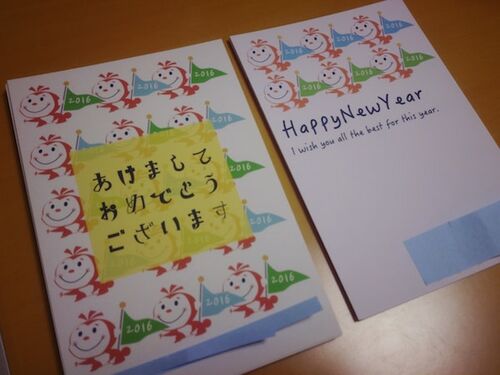 2016 2016 2016
あけまして
おめでとう
ございます
2016
2016 2016 2016
2016 2016 2016
2016 2016 2016
HappyNewYear
I wish you all the best for this year.